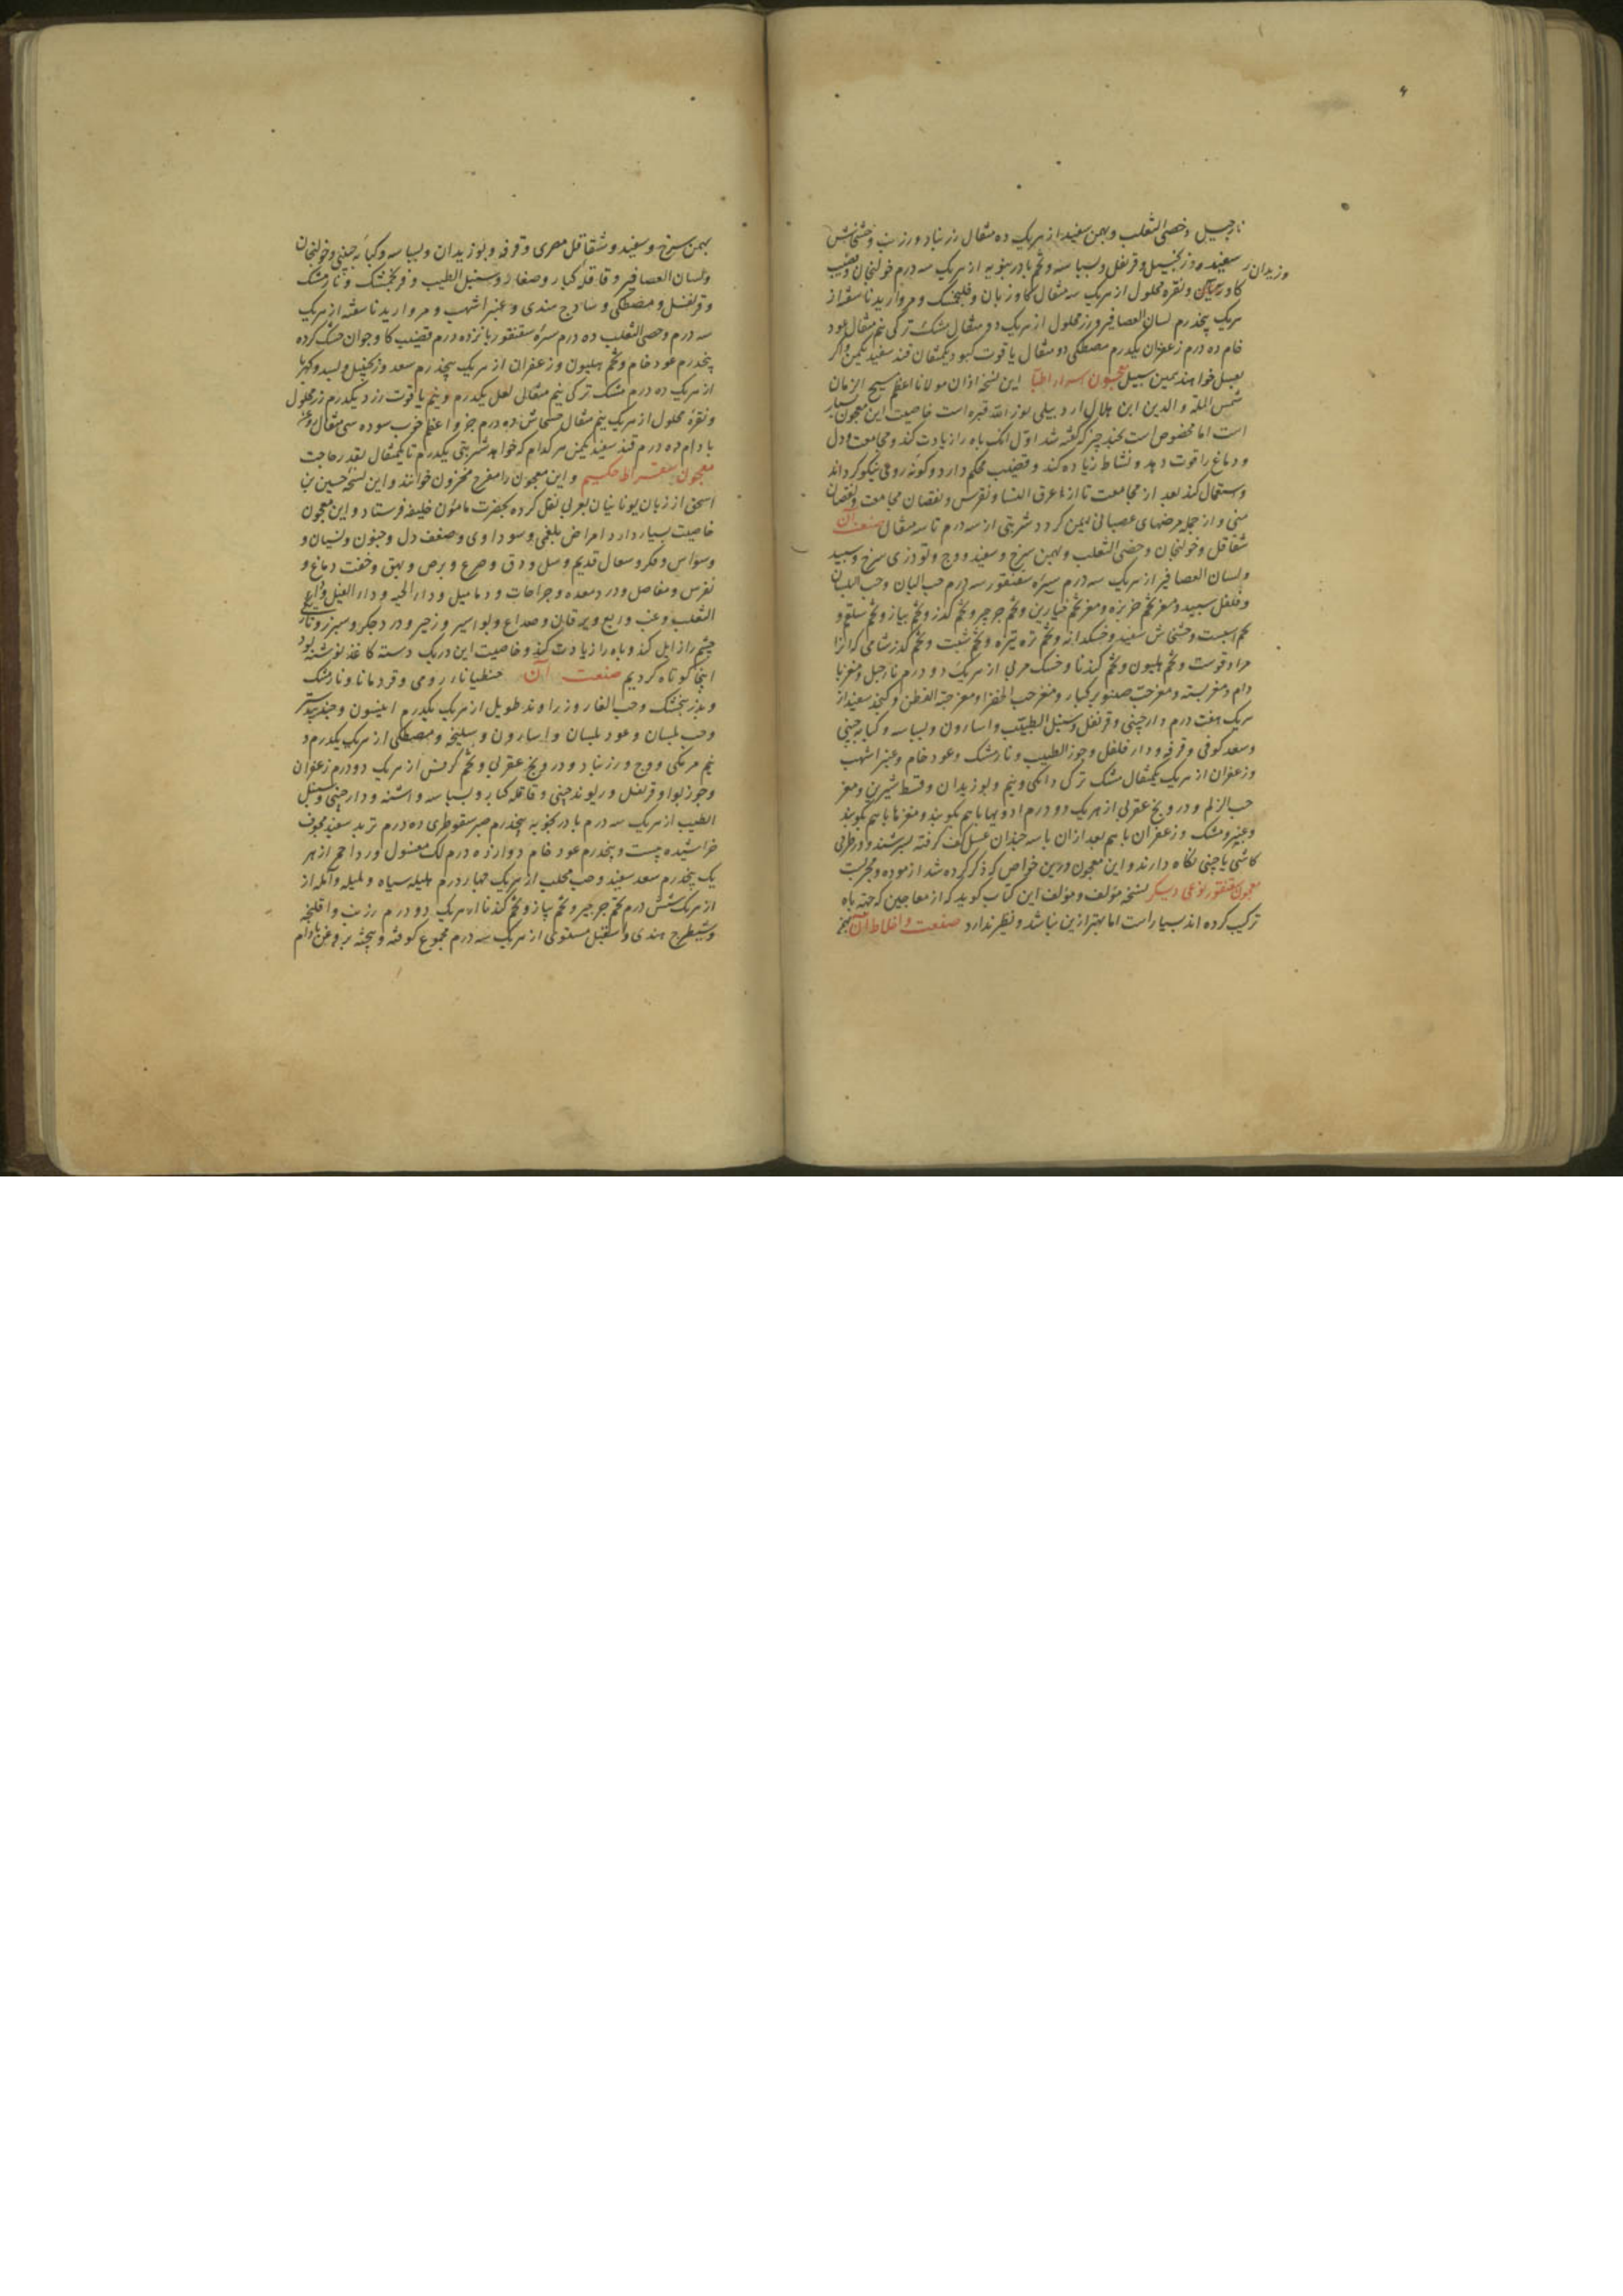 نارجیل و خصی الثعلب و بهمن سفید از هریک ده مثقال زرنباد و زرنب و خشخاش
سفید و زنجبیل و قرنفل و بسباسه و تخم بادرنبویه از هریک سه درم خولنجان و قضیب
وزیدان
کاو و نقره محلول از هریک سه مثقال کاوزبان و فلنجمشک و مروارید ناسفته از
هریک پنجدرم لسان العصافیر و زر محلول از هریک دو مثقال مشک ترکی نیم مثقال عود
خام ده درم زعفران یکدرم مصطکی دو مثقال یاقوت کبود یکمثقال قند سفید یکمن و اکر
بعسل خواهند بهمین سبیل معجون اسرار اطبا این نسخه ازان مولانا اعظم مسیح الزمان
شمس المله و الدین ابن هلال اردبیلی نور الله قبره است خاصیت این معجون بسیار
است اما مخصوص است بچند چیز که گفته شد اول آنک باه را زیادت کند و مجامعت و دل
و دماغ را قوت دهد و نشاط زیاده کند و قضیب محکم دارد و کونه روی نیکو کرداند
و استعمال کند بعد از مجامعت تا از عرق النسا و نقرس و نقصان مجامعت و نقصان
منی و از جمله مرضهای عصبانی ایمن کردد شربتی از سه درم تا سه مثقال صنعت آن
شقاقل و خولنجان و خصی الثعلب و بهمن سرخ و سفید و وج و تودری سرخ و سپید
و لسان العصافیر از هریک سه درم سره سقنقور سه درم حب البان و حب البلسان
و فلفل سپید و مغز تخم خربزه و مغز تخم خیارین و تخم جرجیر و تخم کذر و تخم پیاز و تخم شلغم و
تخم اسبست و خشخاش سفید و خسکدانه و تخم تره تیزه و تخم شبت و تخم کذر شامی که آنرا
مراد قوست و تخم هلیون و تخم کندنا و خسک مربی از هریک دو درم نارجیل و مغز با
دام و مغز پسته و مغز حب صنوبر کبار و مغز حب الخضرا و مغز حبة القطن و کنجد سفید از
هریک هفت درم دارچینی و قرنفل و سنبل الطیب و اسارون و بسباسه و کبابه چینی
و سعد کوفی و قرفه و دار فلفل و جوز الطیب و نارمشک و عود خام و عنبر اشهب
و زعفران از هریک یکمثقال مشک ترکی دانکی و نیم و بوزیدان و قسط شیرین و مغز
حب الزلم و درونج عقربی از هریک دو درم ادویها باهم بکوبند و مغزها باهم بکوبند
و عنبر و مشک و زعفران باهم بعد ازان با سه چندان عسل کف کرفته بسرشند و در ظرفی
کاشی یا چینی نکاه دارند و این معجون درین خواص که ذکر کرده شد آزموده و مجربست
معجون سقنقور نوعی دیکر نسخه مؤلف و مؤلف این کتاب کوید که از معاجین که جهة باه
ترکیب کرده اند بسیار است اما بهتر ازین نباشد و نظیر ندارد صنعت و اخلاط آن
بهمن سرخ و سفید و شقاقل مصری و قرفه و بوزیدان و بسباسه و کبابه چینی و خولنجان
و لسان العصافیر و قاقله کبار و صغار و سنبل الطیب و فرنجمشک و نارمشک
و قرنفل و مصطکی و ساذج هندی و عنبر اشهب و مروارید ناسفته از هریک
سه درم و خصی الثعلب ده درم سره سقنقور پانزده درم قضیب کاو جوان خشک کرده
پنجدرم عود خام و تخم هلیون و زعفران از هریک پنجدرم سعد و زنجبیل و بسد و کهربا
از هریک ده درم مشک ترکی نیم مثقال لعل یکدرم و نیم یاقوت زرد یکدرم زر محلول
و نقره محلول از هریک نیم مثقال خشخاش ده درم جزو اعظم خوب سوده سی مثقال و مغز
بادام ده درم قند سفید یکمن هرکدام که خواهد شربتی یکدرم تا یکمثقال بقدر حاجت
معجون سقراط حکیم و این معجون را مفرح مخزون خوانند و این نسخه حسین بن
اسحق از زبان یونانیان بعربی نقل کرده بحضرت مامون خلیفه فرستاد و این معجون
خاصیت بسیار دارد امراض بلغمی و سوداوی و ضعف دل و جنون و نسیان و
وسواس و فکر و سعال قدیم و سل و دق و صرع و برص و بهق و خفت دماغ و
نقرس و مفاصل و درد معده و جراحات و دمامیل و داء الحیه و داء الفیل و داء
الثعلب و غب و ربع و یرقان و صداع و بواسیر و زحیر و درد جکر و سپرز و تاریکی
چشم را زایل کند و باه را زیادت کند و خاصیت این در یک دسته کاغذ نوشته بود
اینجا کوتاه کردیم صنعت آن جنطیانا رومی و قردمانا و نارمشک
و بذر بنجنشک و حب الغار و زراوند طویل از هریک یکدرم انیسون و جندبیدستر
و حب بلسان و عود بلسان و اسارون و سلیخه و مصطکی از هریک یکدرم و
نیم مر مکی و وج و زرنباد و درونج عقربی و تخم کرفس از هریک دو درم زعفران
و جوز بوا و قرنفل و ریوند چینی و قاقله کبار و بسباسه و اشنه و دارچینی و سنبل
الطیب از هریک سه درم بادرنجبویه پنجدرم صبر سقوطری ده درم تربد سفید مجوف
خراشیده بیست و پنجدرم عود خام دوازده درم لک مغسول ورد احمر از هر
یک پنجدرم سعد سفید و حب محلب از هریک چهار درم هلیله سیاه و بلیله و آمله از
از هریک شش درم تخم جرجیر و تخم پیاز و تخم کندنا از هریک دو درم زرنب و افلنجه
و شیطرج هندی و اسقیل مشوی از هریک سه درم مجموع کوفته و بیخته بروغن بادام